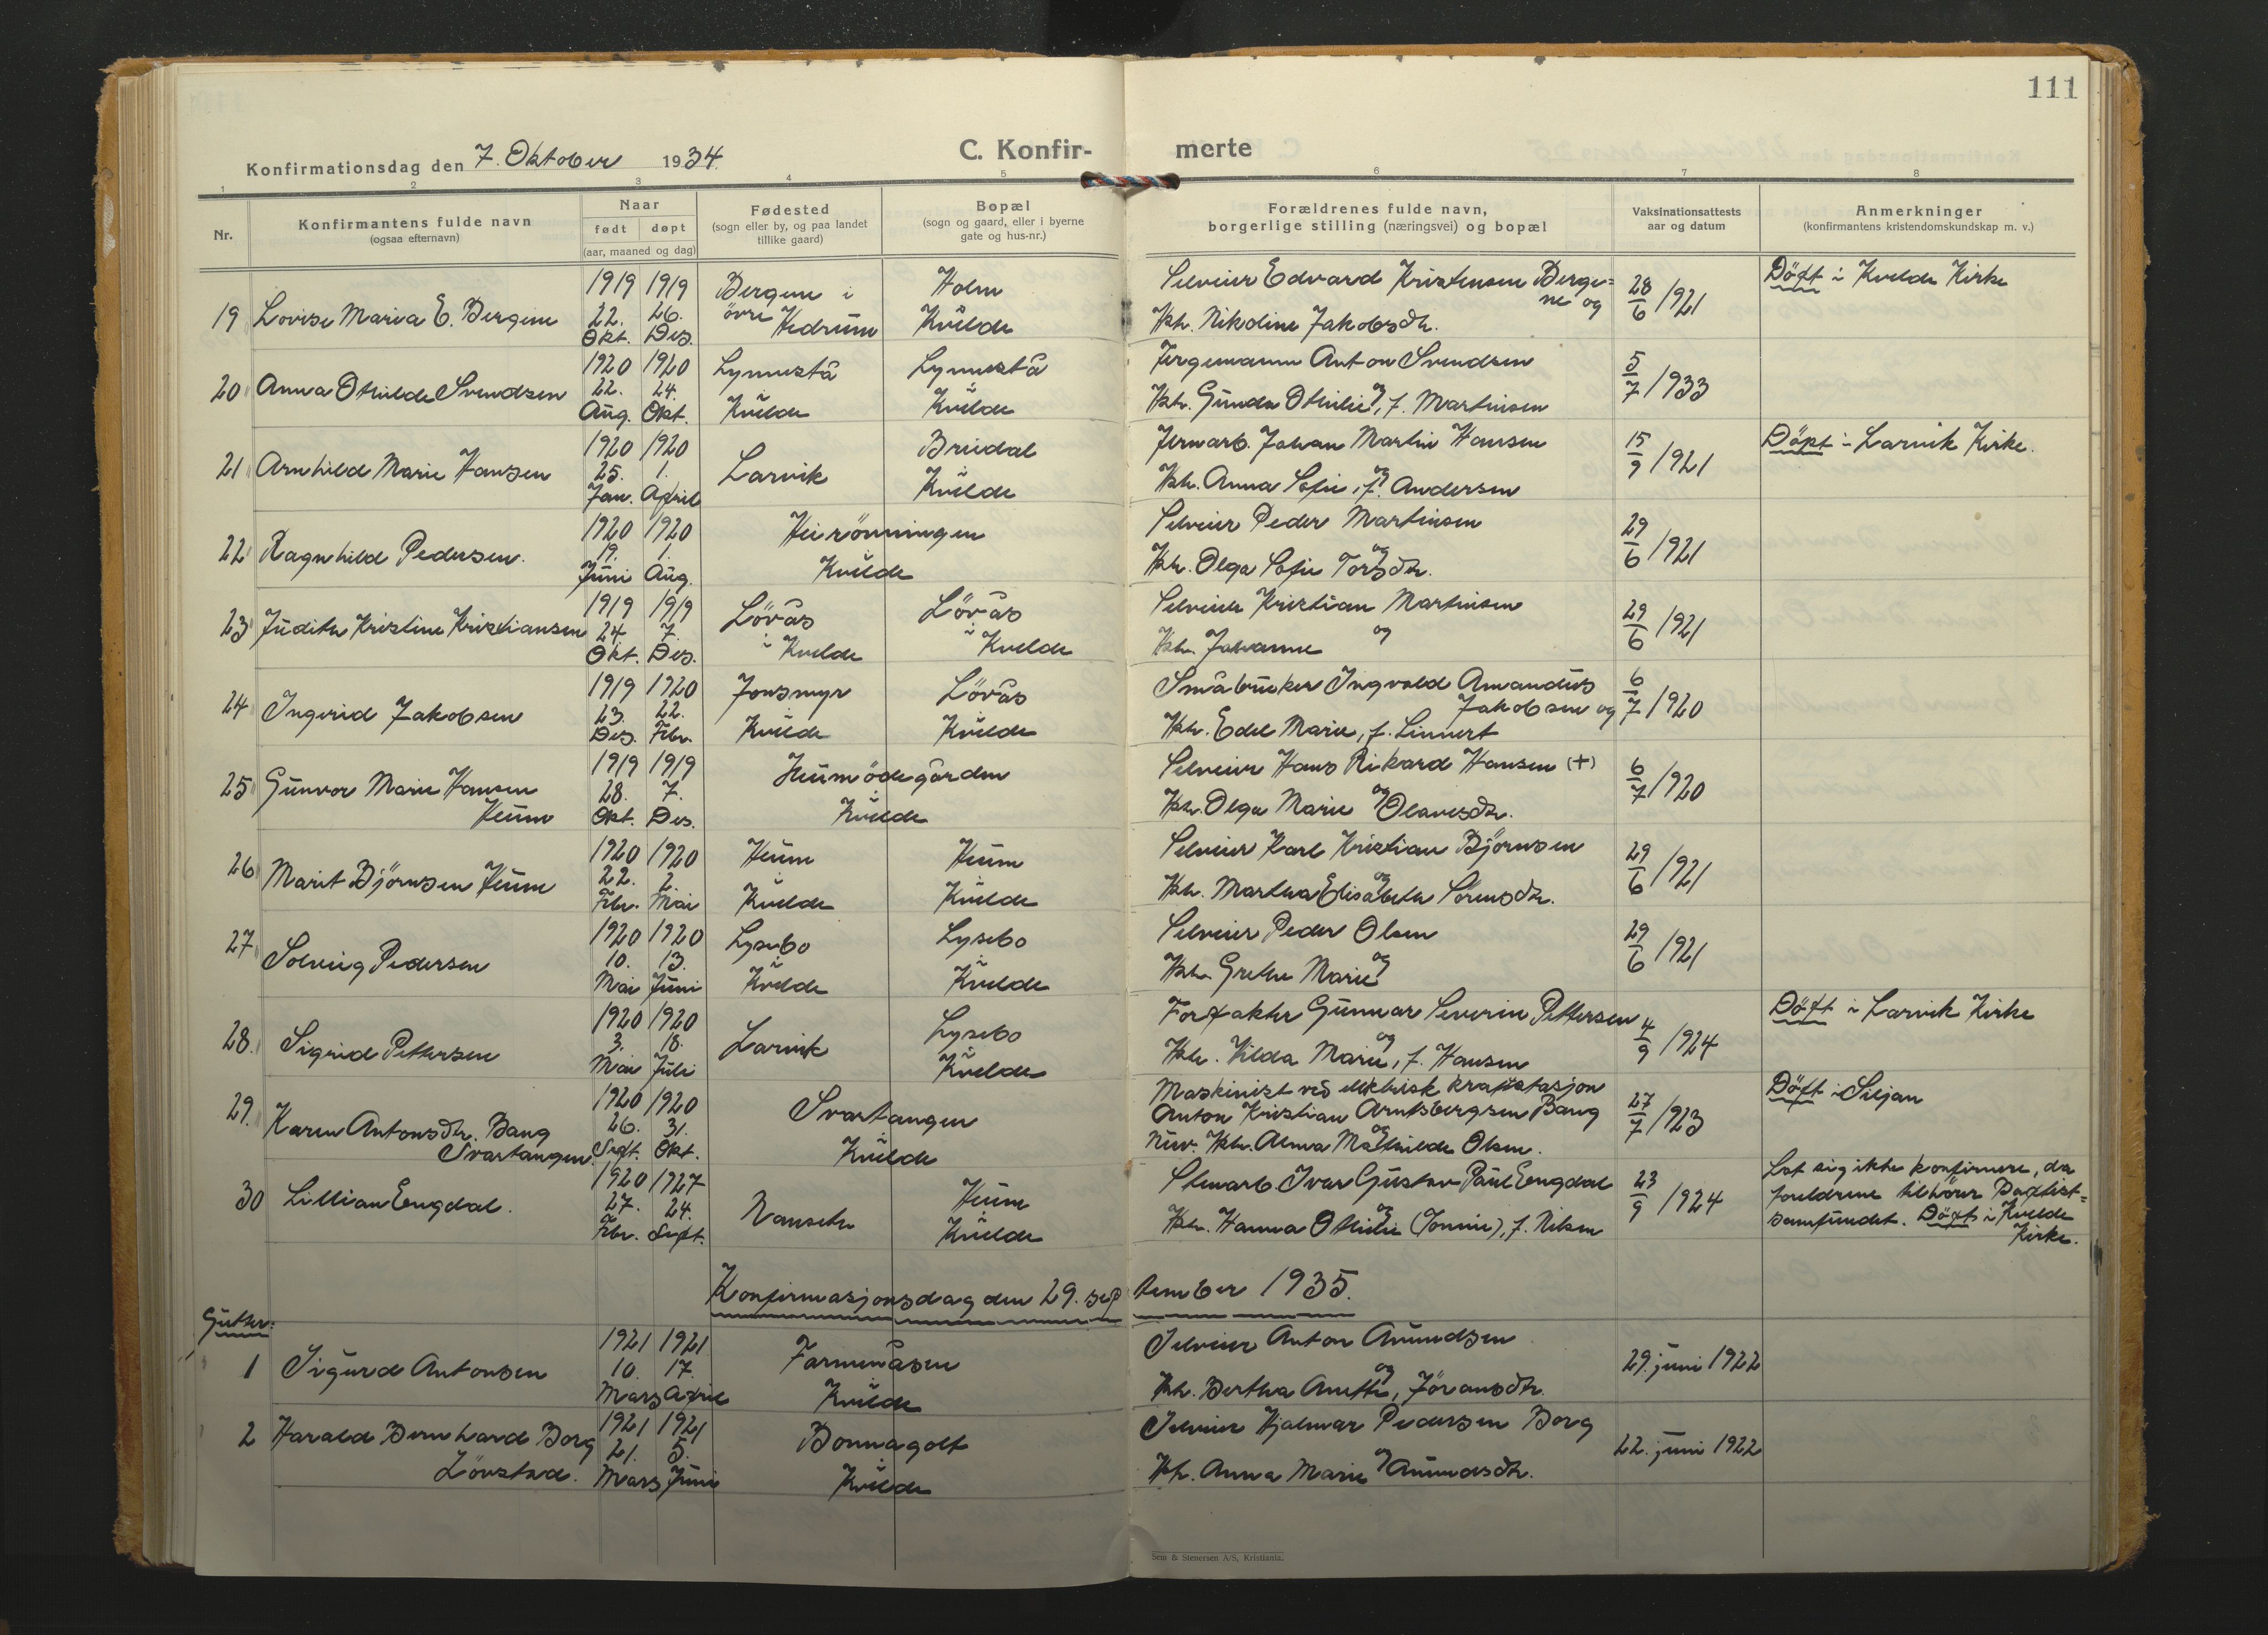 111
Konfirmationsdag den 7. Oktober 1934.
C. Konfir- merte
1 2 3 4 5 6 7 8
Nr.
Konfirmantens fulde navn
(ogsaa efternavn)
Naar
født døpt
(aar, maaned og dag)
Fødested
(sogn eller by, og paa landet
tillike gaard)
Bopæl
(sogn og gaard, eller i byerne
gate og hus-nr.)
Forældrenes fulde navn,
borgerlige stilling (næringsvei) og bopæl
Vaksinationsattests
aar og datum
Anmerkninger
(konfirmantens kristendomskundskap m. v.)
1919 1919 Bergene i Holm Selveier Edvard Kristensen Berge= Döpt i Kvelde Kirke
19 Lovise Maria E. Bergene 22. 26. övre ne og 28/6 1921
Okt. Des. Hedrum Kvelde Kh. Nikoline Jakobsdtr.
1920 1920 Lynnestå Lynnestå Fergemann Anton Svendsen
20 Anna Othilde Svendsen 22. 24. i i 5/7 1933
Aug. Okt. Kvelde Kvelde Kh. Gunda Othilie og, f. Martinsen
1920 1920 Bredal Jernarb. Johan Martin Hansen Döpt i Larvik Kirke.
21 Arnhild Marie Hansen 25. 1. Larvik i 15/9 1921
Jan. April Kvelde Kh. Anna Sofie, og f. Andersen
1920 1920 Heirönningen Selveier Peder Martinsen
22 Ragnhild Pedersen. 19. 1. i og 29/6 1921
Juni Aug. Kvelde Kh. Olga Sofie Torsdtr.
1919 1919 Lövås Lövås Selveier Kristian Martinsen
23 Judith Kristine Kristiansen 24. 7. i i og 29/6 1921
Okt. Des. Kvelde Kvelde Kh. Johanne
1919 1920 Jonsmyr Lövås Småbruker Ingvald Amandus
24 Ingerid Jakobsen 23. 22. i i Jakobsen og 6/7 1920
Des. Febr. Kvelde Kvelde Kh. Edel Marie, f. Linnert
1919 1919 Heumödegården Selveier Hans Rikard Hansen (+)
25 Gunvor Marie Hansen 28. 7. i og 6/7 1920
Heum Okt. Des. Kvelde Kh. Olga Marie Olavesdtr.
1920 1920 Heum Heum Selveier Karl Kristian Björnsen
26 Marit Björnsen Heum 22. 2. i i og 29/6 1921
Febr. Mai Kvelde Kvelde Kh. Martha Elisabeth Sörensdtr.
1920 1920 Lysebo Lysebo Selveier Peder Olsen
27 Solveig Pedersen 10. 13. i i og 29/6 1921
Mai Juni Kvelde Kvelde Kh. Grethe Marie
1920 1920 Lysebo Forpakter Gunnar Severin Pettersen Döpt i Larvik Kirke
28. Sigrid Pettersen 3. 18. Larvik i og 4/9 1924
Mai Juli Kvelde Kh. Hilda Marie, f. Hansen
1920 1920 Svartangen Maskinist ved elektrisk kraftstasjon Döpt i Siljan
29. Karen Antonsdtr. Bang 26. 31. i Anton Kristian Arntsbergsen Bang 27/7 1923
Svartangen. Sept. Okt. Kvelde og Kh. Alma Mathilde Olsen.
1920 1927 Heum Stenarb. Ivar Gustav Paul Engdal Lot sig ikke konfirmere, da
30 Lillian Engdal. 27. 24. Nanseth i og 23/9 1924 foreldrene tilhörer Baptist=
Febr. Sept. Kvelde Kh. Hanna Othilie (Jonine), f. Nilsen samfundet. Döpt i Kvelde
Kirke.
Konfirmasjonsdag den 29. september 1935.
Gutter:
1921 1921 Farmenåsen Selveier Anton Amundsen
1 Sigurd Antonsen 10. 17. i og 29. juni 1922
Mars April Kvelde Kh. Bertha Anette, Jöransdtr.
1921 1921 Selveier Hjalmar Pedersen Borg
2 Harald Bernhard Borg 21. 5. Bonnagolt i og 22. juni 1922
Lövstad. Mars Juni Kvelde Kh. Anna Marie Amundsdtr.
Sem & Stenersen A/S, Kristiania.